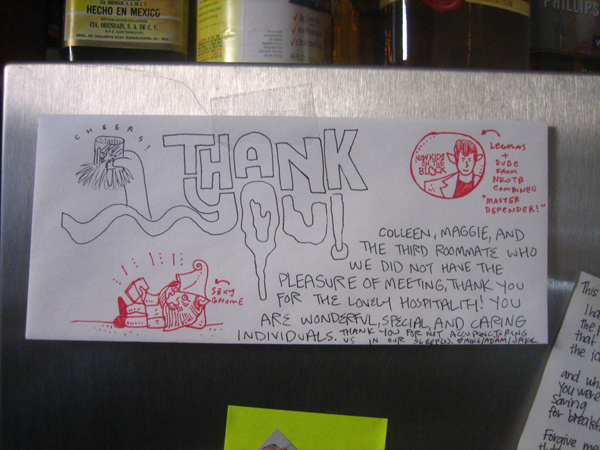 HECHO EN MEXICO
CIA. ORENDAIN, S.A. DE C.V.
PHILLIPS
CHEERS!
THANK
YOU!
NEW KIDS
ON THE
BLOCK
LEGOLAS
+
DUDE
FROM
NKOTB
COMBINED
"MASTER
DEFENDER!"
SEXY
GNOME
COLLEEN, MAGGIE, AND
THE THIRD ROOMMATE WHO
WE DID NOT HAVE THE
PLEASURE OF MEETING, THANK YOU
FOR THE LOVELY HOSPITALITY! YOU
ARE WONDERFUL, SPECIAL, AND CARING
INDIVIDUALS. THANK YOU FOR NOT ACCUPUNCTURING
US IN OUR SLEEP(S). /ADAM/JAKE
This
I ha
the
that
the
and wh
you were
saving
for breakf
Forgive me